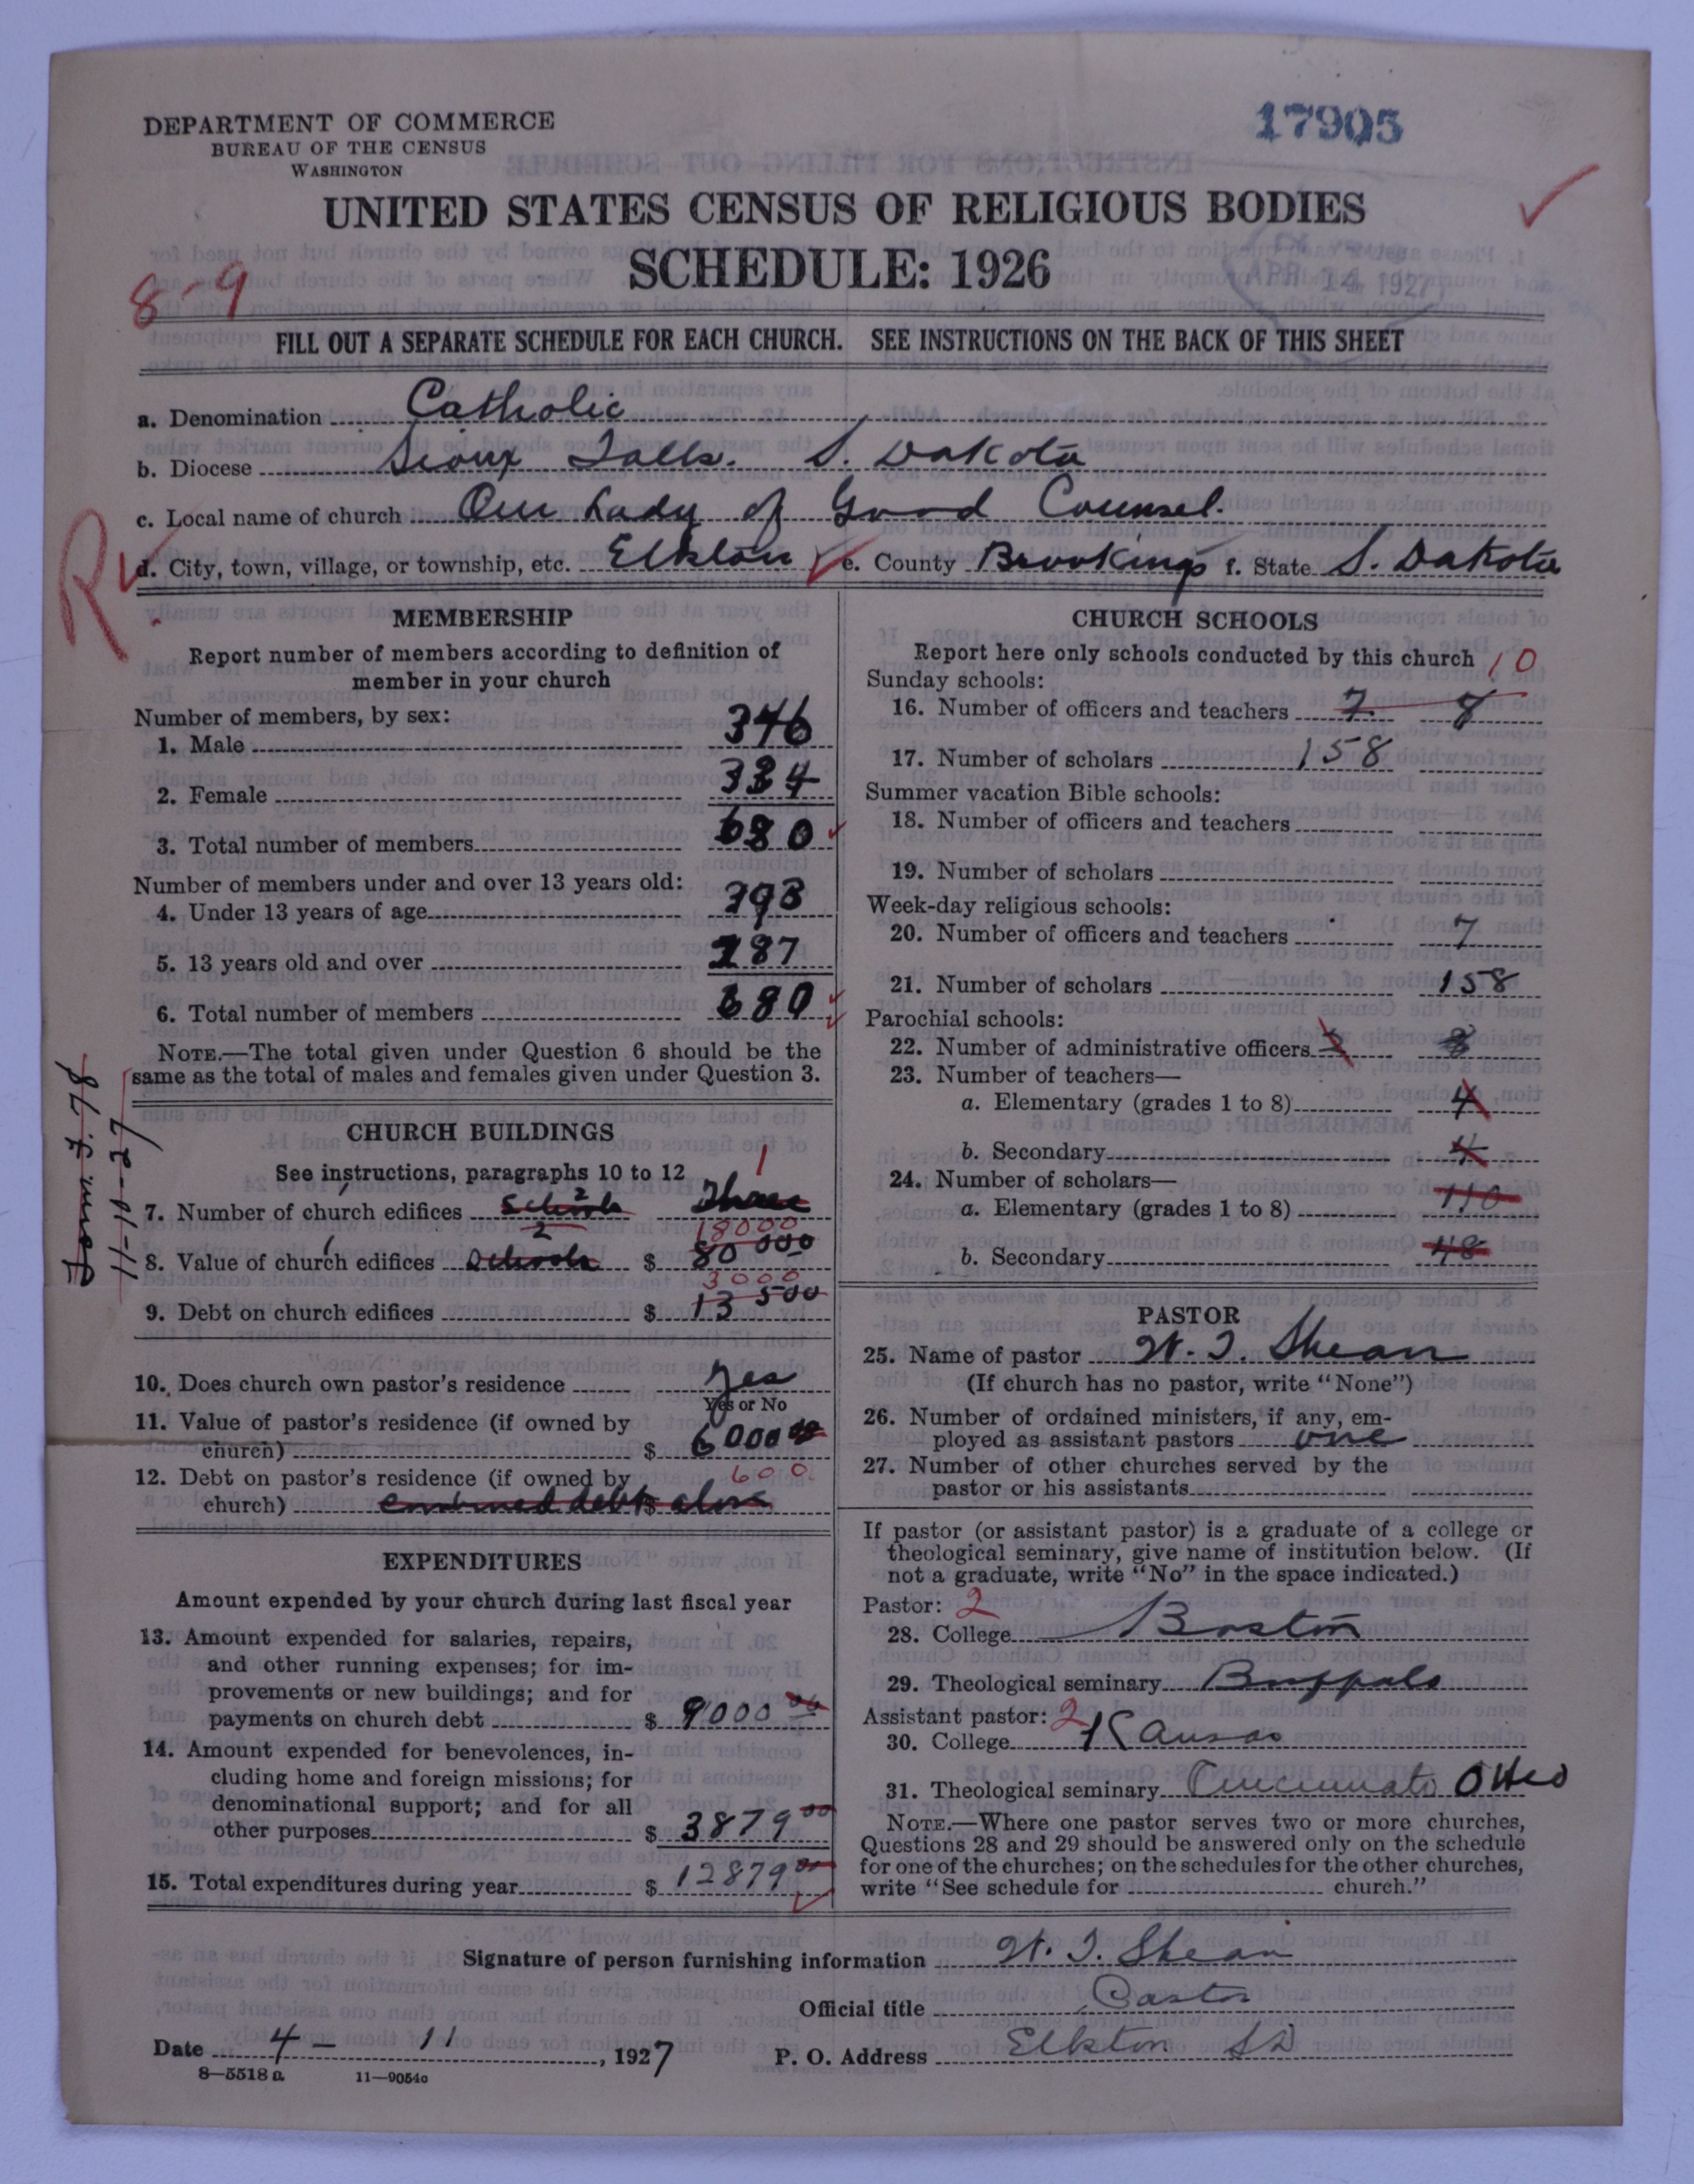 DEPARTMENT OF COMMERCE
BUREAU OF THE CENSUS
WASHINGTON
17905
UNITED STATES CENSUS OF RELIGIOUS BODIES
SCHEDULE: 1926
APR 14 1927
8-9
FILL OUT A SEPARATE SCHEDULE FOR EACH CHURCH. SEE INSTRUCTIONS ON THE BACK OF THIS SHEET
a. Denomination Catholic
b. Diocese Sioux Falls. S. Dakota
c. Local name of church Our Lady of Good Counsel.
R
d. City, town, village, or township, etc. Elkton e. County Brookings f. State S. Dakota
MEMBERSHIP
Report number of members according to definition of
member in your church
Number of members, by sex:
1. Male 346
2. Female 334
3. Total number of members 680
Number of members under and over 13 years old:
4. Under 13 years of age
5. 13 years old and over
6. Total number of members 680
NOTE.—The total given under Question 6 should be the
same as the total of males and females given under Question 3.
Form E. 78
11-11-27
CHURCH BUILDINGS
See instructions, paragraphs 10 to 12 1
7. Number of church edifices Schools 2 Three
8. Value of church edifices Schools 2 $ 80 000 18000
9. Debt on church edifices $ 13 500 3000
10. Does church own pastor's residence Yes
Yes or No
11. Value of pastor's residence (if owned by
church) $ 6000 00
12. Debt on pastor's residence (if owned by 600
church) combined debt $ above
EXPENDITURES
Amount expended by your church during last fiscal year
13. Amount expended for salaries, repairs,
and other running expenses; for im-
provements or new buildings; and for
payments on church debt $ 9000 00
14. Amount expended for benevolences, in-
cluding home and foreign missions; for
denominational support; and for all
other purposes $ 3879 00
15. Total expenditures during year $ 12879 00
CHURCH SCHOOLS
Report here only schools conducted by this church 10
Sunday schools:
16. Number of officers and teachers 7 8
17. Number of scholars 158
Summer vacation Bible schools:
18. Number of officers and teachers
19. Number of scholars
Week-day religious schools:
20. Number of officers and teachers 7
21. Number of scholars 158
Parochial schools:
22. Number of administrative officers
23. Number of teachers—
a. Elementary (grades 1 to 8) 4
b. Secondary 4
24. Number of scholars—
a. Elementary (grades 1 to 8) 110
b. Secondary 48
PASTOR
25. Name of pastor W. I. Shean
(If church has no pastor, write "None")
26. Number of ordained ministers, if any, em-
ployed as assistant pastors one
27. Number of other churches served by the
pastor or his assistants
If pastor (or assistant pastor) is a graduate of a college or
theological seminary, give name of institution below. (If
not a graduate, write "No" in the space indicated.)
Pastor: 2
28. College Boston
29. Theological seminary Buffalo
Assistant pastor: 2
30. College Kansas
31. Theological seminary Cincinnati Ohio
NOTE.—Where one pastor serves two or more churches,
Questions 28 and 29 should be answered only on the schedule
for one of the churches; on the schedules for the other churches,
write "See schedule for church."
Signature of person furnishing information W. I. Shean
Official title Pastor
Date 4 - 11, 1927 P. O. Address Elkton SD
8—5518 a 11—9054c